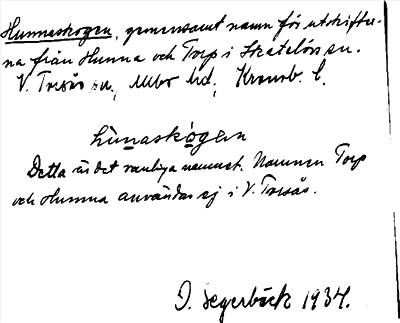 Hunnaskogen, gemensamt namn för utskifter-
na från Hunna och Torp i Skatelövs sn.
V. Torsås sn, Allbo hd, Kronob. l.
hùnaskógen
Detta är det vanliga namnet. Namnen Torp
och Hunna användas ej i V. Torsås.
D. Segerbäck 1934.